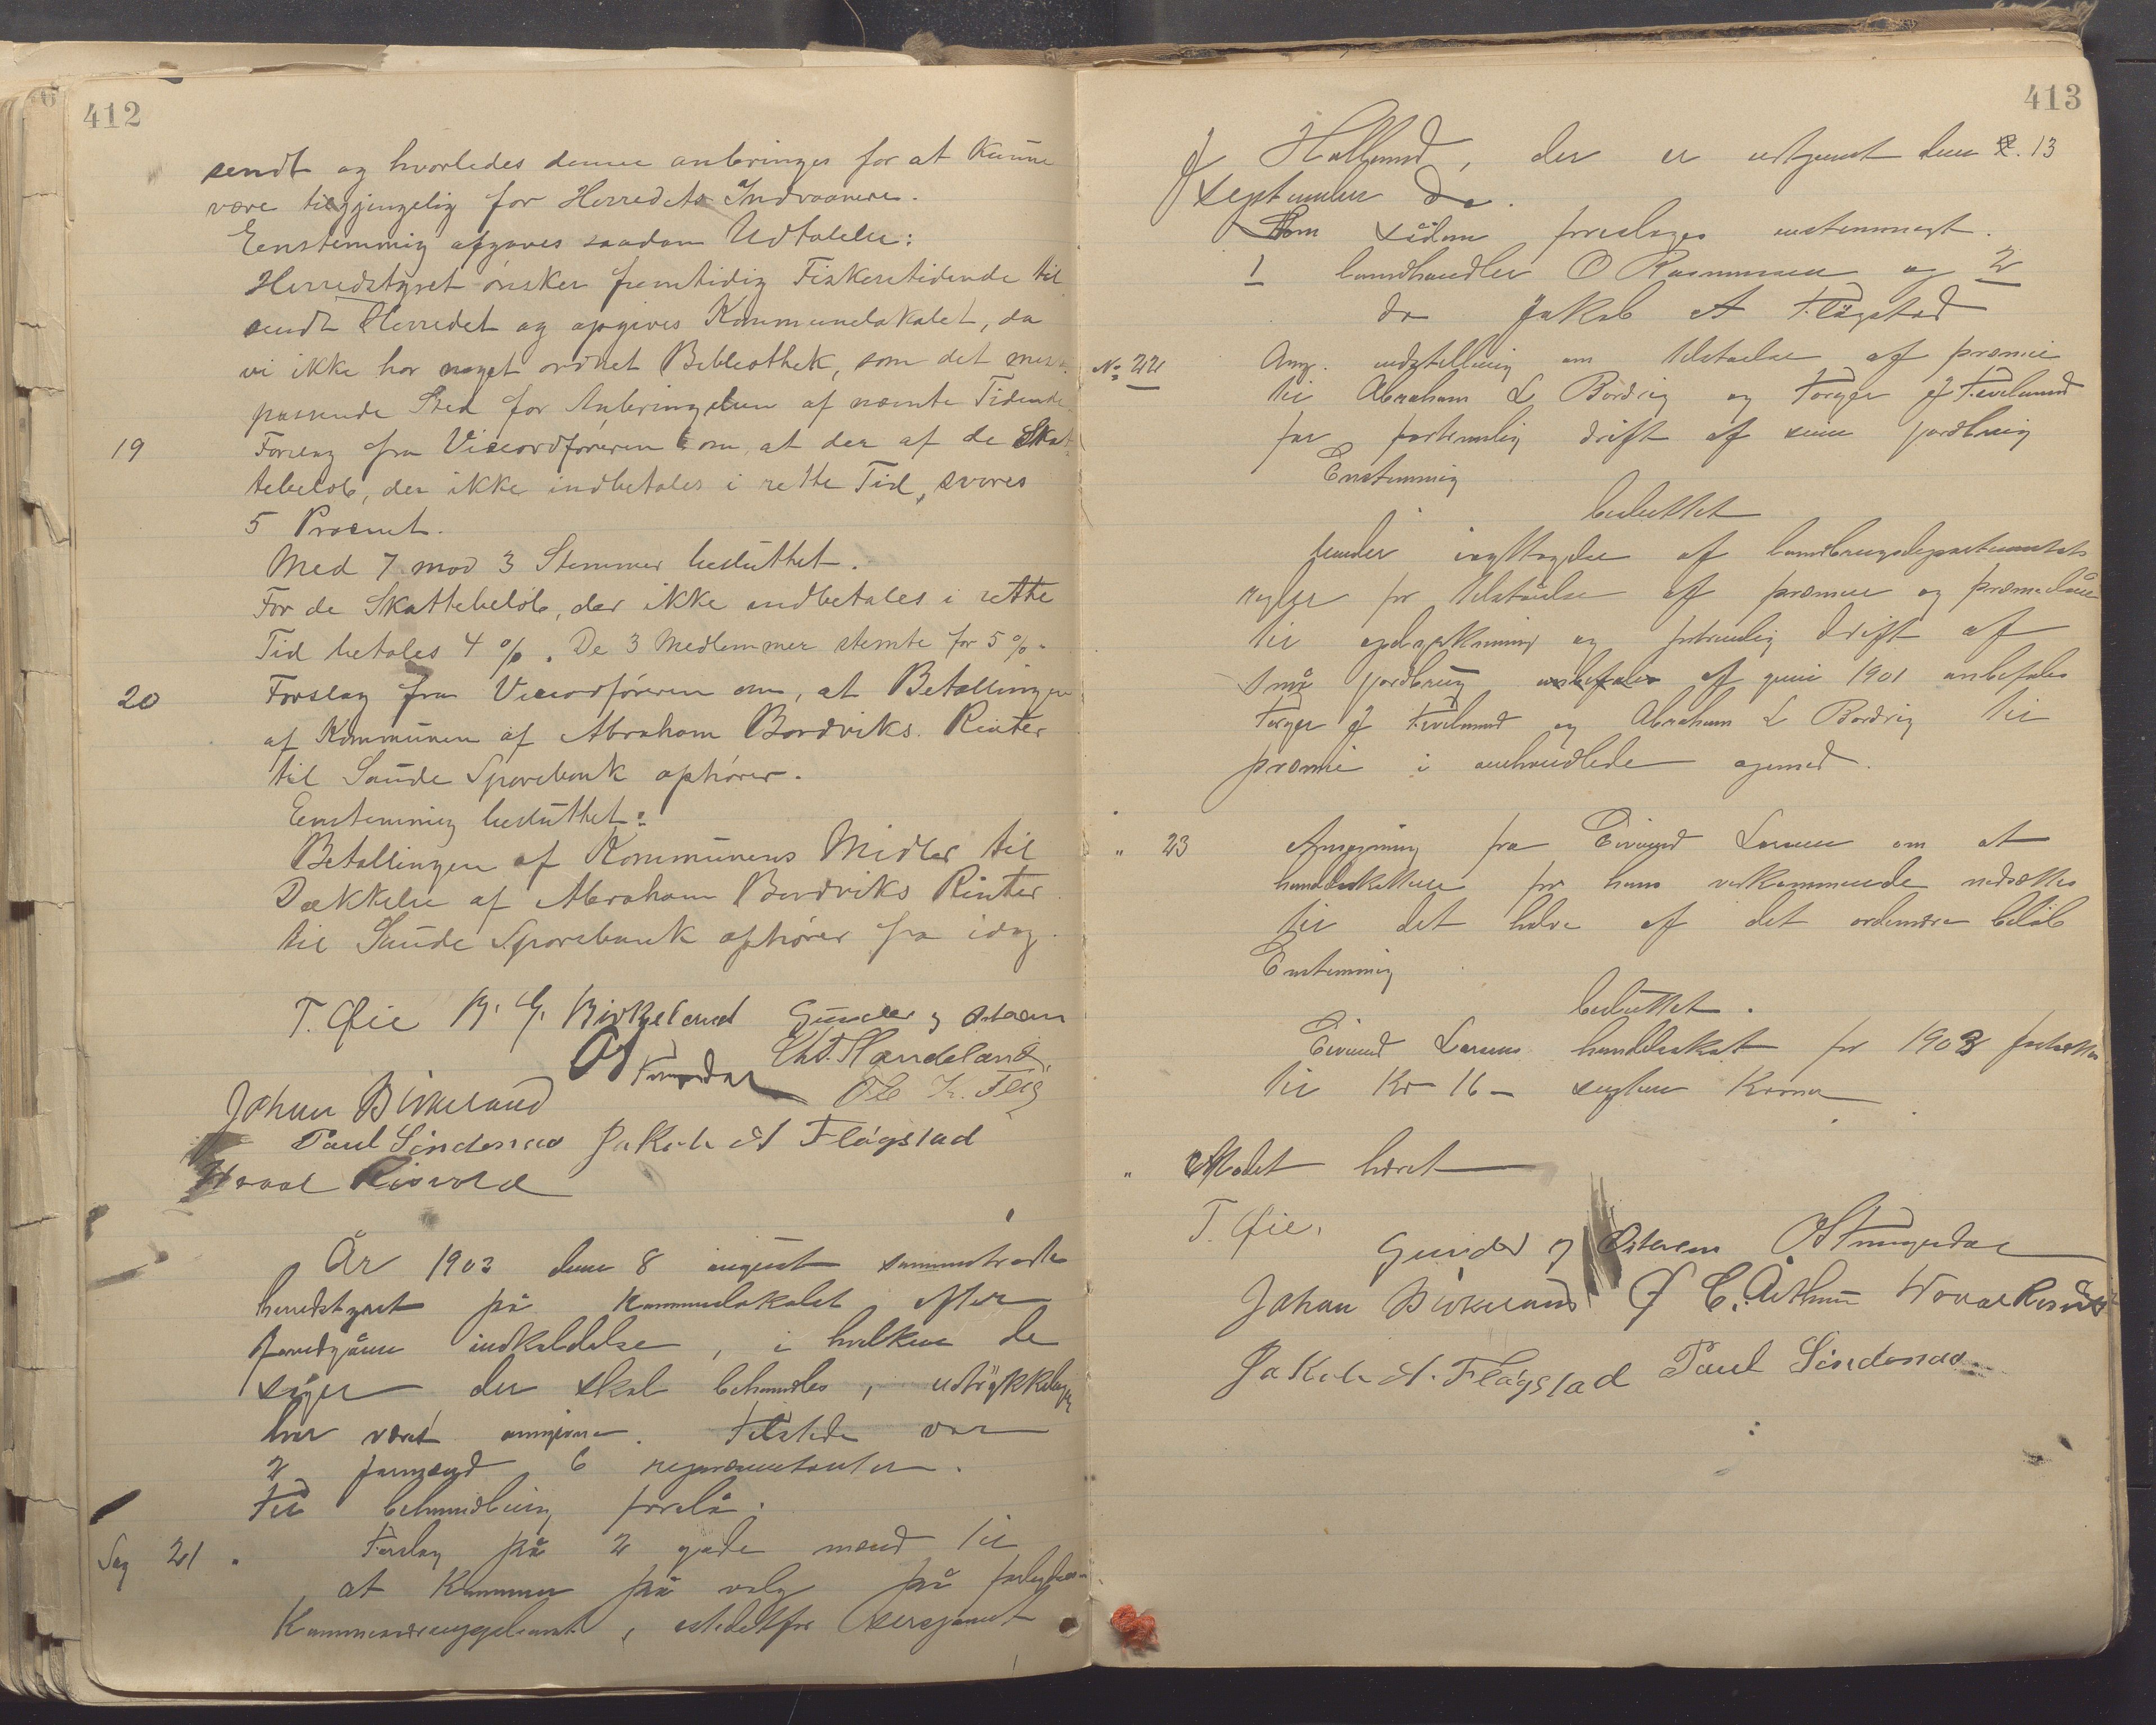 412
sendt og hvorledes denne anbringes for at kunne
være tilgjengelig for Herredets Indvaanere.
Eenstemmig afgaves saadan Udtalelse:
Herredstyret ønsker fremtidig Fiskeritidende til
sendt Herredet og opgives Kommunelokalet, da
vi ikke har noget ordnet Bibliothek, som det mest
passende Sted for Anbringelsen af nævnte Tidende.
19 Forslag fra Viceordføreren om, at der af de Skat
tebeløb, der ikke indbetales i rette Tid, svares
5 Procent.
Med 7 mod 3 Stemmer besluttet.
For de Skattebeløb, der ikke indbetales i rette
Tid betales 4 %. De 3 Medlemmer stemte for 5 %.
20 Forslag fra Viceordføreren om, at Betallingen
af Kommunen af Abraham Bordviks Renter
til Saude Sparebank ophører.
Eenstemmig besluttet:
Betallingen af Kommunens Midler til
Dækkelse af Abraham Bordviks Renter
til Saude Sparebank ophører fra idag.
T. Øie B. G. Birkeland Gunder J Østerem
Chr. Handeland
Johan Birkeland
Paul Lindenæs Jakob A Fløgstad
År 1903 den 8 august sammentrådte
herredstyret på Kommunelokalet efter
foregående indkaldelse, i hvilken de
sager der skal behandles, udtrykkelig
har været angivne. Tilstede var
2 formænd 6 repræsentanter.
Til behandling forelå:
Sag 21. Forslag på 2 gode mænd til
at komme på valg på forligelses-
kommissærsuppleant, istedetfor Aasergaard
413
J Helleland, der er udtjent den 13
september ds.
Som sådan foreslages enstemmigt.
1 landhandler O Rasmussen og 2
do Jakob A Fløgstad
No 22 Ang. indstilling om tilståelse af præmie
til Abraham L Bordvig og Torger J Eveland
for fortrinlig drift af sine jordbrug
Enstemmig
besluttet
Under iagttagelse af landbrugsdepartementets
regler for tilståelse af præmier og præmielån
til opdyrkning og fortrinlig drift af
små jordbrug af juni 1901 anbefales
Torger J Eveland og Abraham L Bordvig til
præmie i omhandlede øiemed.
" 23 Ansøgning fra Eivind Larsen om at
handelsskatten for hans vedkommende nedsættes
til det halve af det ordinære beløb
Enstemmig
besluttet.
Eivind Larsens handelsskat for 1903 fastsættes
til Kr 16 – seksten Kroner
" Mødet hævet
T. Øie.
Gunder J Østerem
Johan Birkeland
Jakob A. Fløgstad Paul Lindenæs